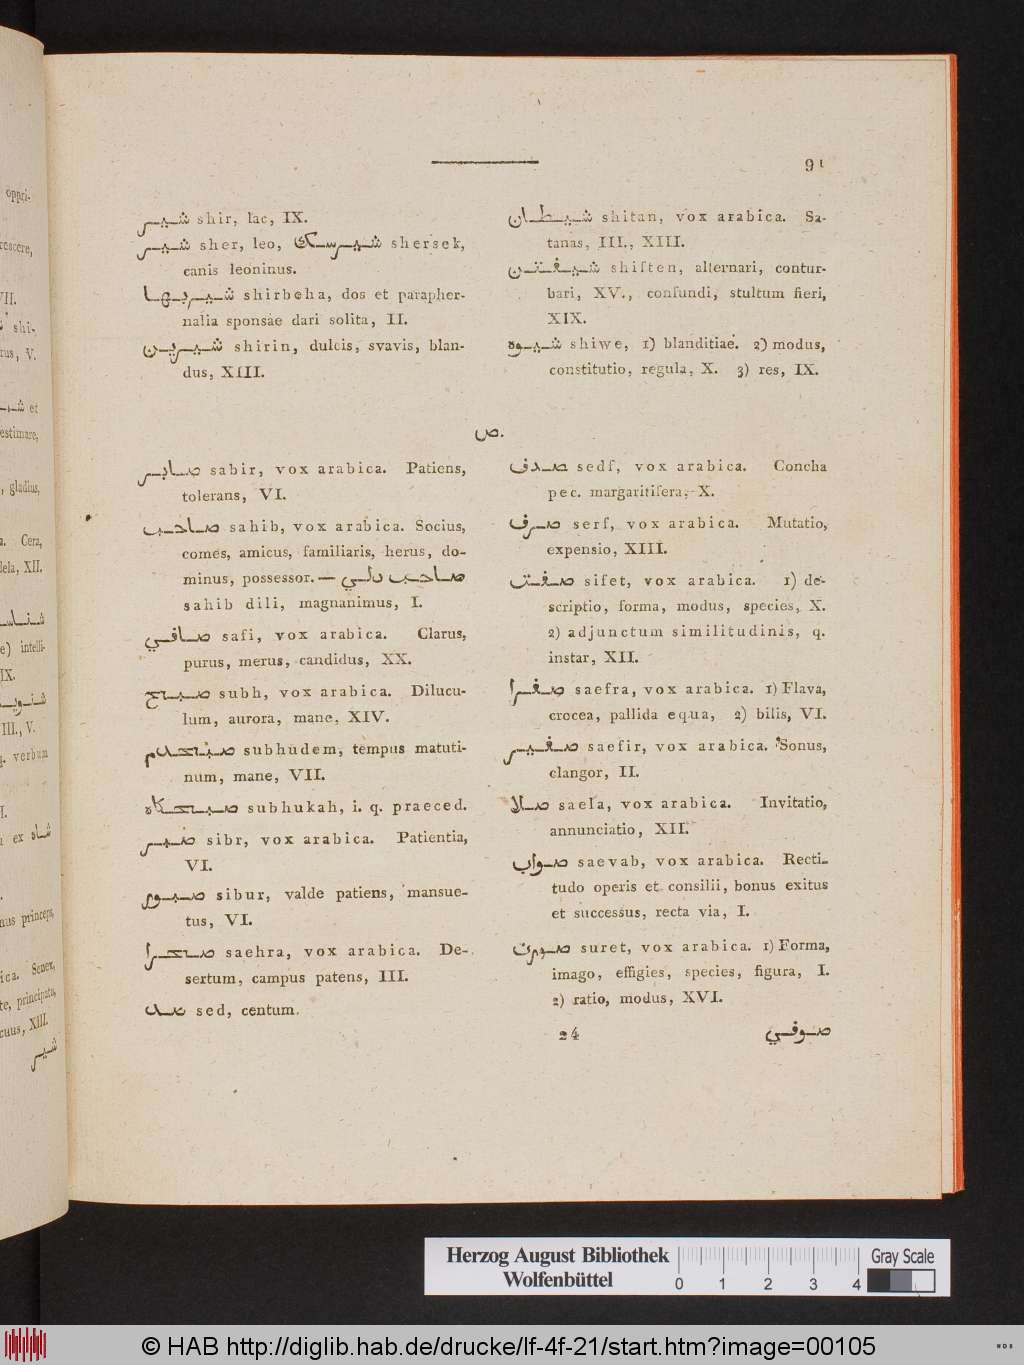 91
شير shir, lac, IX.
شير sher, leo, شيرسك shersek,
canis leoninus.
شيربها shirbeha, dos et parapher-
nalia sponsae dari solita, II.
شيرين shirin, dulcis, svavis, blan-
dus, XIII.
شيطان shitan, vox arabica. Sa-
tanas, III., XIII.
شيفتن shiften, alternari, contur-
bari, XV., confundi, stultum fieri,
XIX.
شيوه shiwe, 1) blanditiae. 2) modus,
constitutio, regula, X. 3) res, IX.
ص.
صابر sabir, vox arabica. Patiens,
tolerans, VI.
صاحب sahib, vox arabica. Socius,
comes, amicus, familiaris, herus, do-
minus, possessor. — صاحب دلي
sahib dili, magnanimus, I.
صافي safi, vox arabica. Clarus,
purus, merus, candidus, XX.
صبح subh, vox arabica. Dilucu-
lum, aurora, mane, XIV.
صبحدم subhudem, tempus matuti-
num, mane, VII.
صبحكاه subhukah, i. q. praeced.
صبر sibr, vox arabica. Patientia,
VI.
صبور sibur, valde patiens, mansue-
tus, VI.
صحرا saehra, vox arabica. De-
sertum, campus patens, III.
صد sed, centum.
صدف sedf, vox arabica. Concha
pec. margaritifera, X.
صرف serf, vox arabica. Mutatio,
expensio, XIII.
صفت sifet, vox arabica. 1) de-
scriptio, forma, modus, species, X.
2) adjunctum similitudinis, q.
instar, XII.
صفرا saefra, vox arabica. 1) Flava,
crocea, pallida equa, 2) bilis, VI.
صفير saefir, vox arabica. Sonus,
clangor, II.
صلا saela, vox arabica. Invitatio,
annunciatio, XII.
صواب saevab, vox arabica. Recti-
tudo operis et consilii, bonus exitus
et successus, recta via, I.
صورت suret, vox arabica. 1) Forma,
imago, effigies, species, figura, I.
2) ratio, modus, XVI.
24 صوفي
Herzog August Bibliothek
Wolfenbüttel
0 1 2 3 4
Gray Scale
© HAB http://diglib.hab.de/drucke/lf-4f-21/start.htm?image=00105